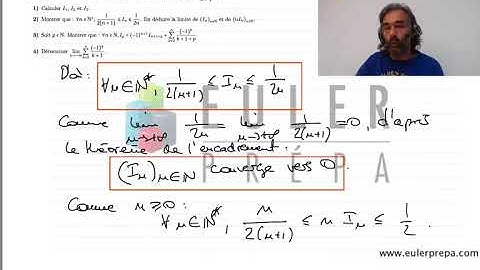 1) Calculer I₀, I₁ et I₂.
2) Montrer que : ∀n ∈ ℕ*, 1/(2(n+1)) ≤ Iₙ ≤ 1/(2n). En déduire la limite de (Iₙ)ₙ∈ℕ et de (nIₙ)ₙ∈ℕ.
3) Soit p ∈ ℕ. Montrer que : ∀n ∈ ℕ,
4) Déterminer
D'où : ∀n∈ℕ*, 1/(2(n+1)) ≤ Iₙ ≤ 1/(2n)
Comme lim n→+∞ 1/(2n) = lim n→+∞ 1/(2(n+1)) = 0, d'après
le théorème de l'encadrement :
(Iₙ)n∈ℕ converge vers 0.
Comme n ≥ 0 : ∀n∈ℕ*, n/(2(n+1)) ≤ n Iₙ ≤ 1/2.
EULER
PRÉPA
www.eulerprepa.com